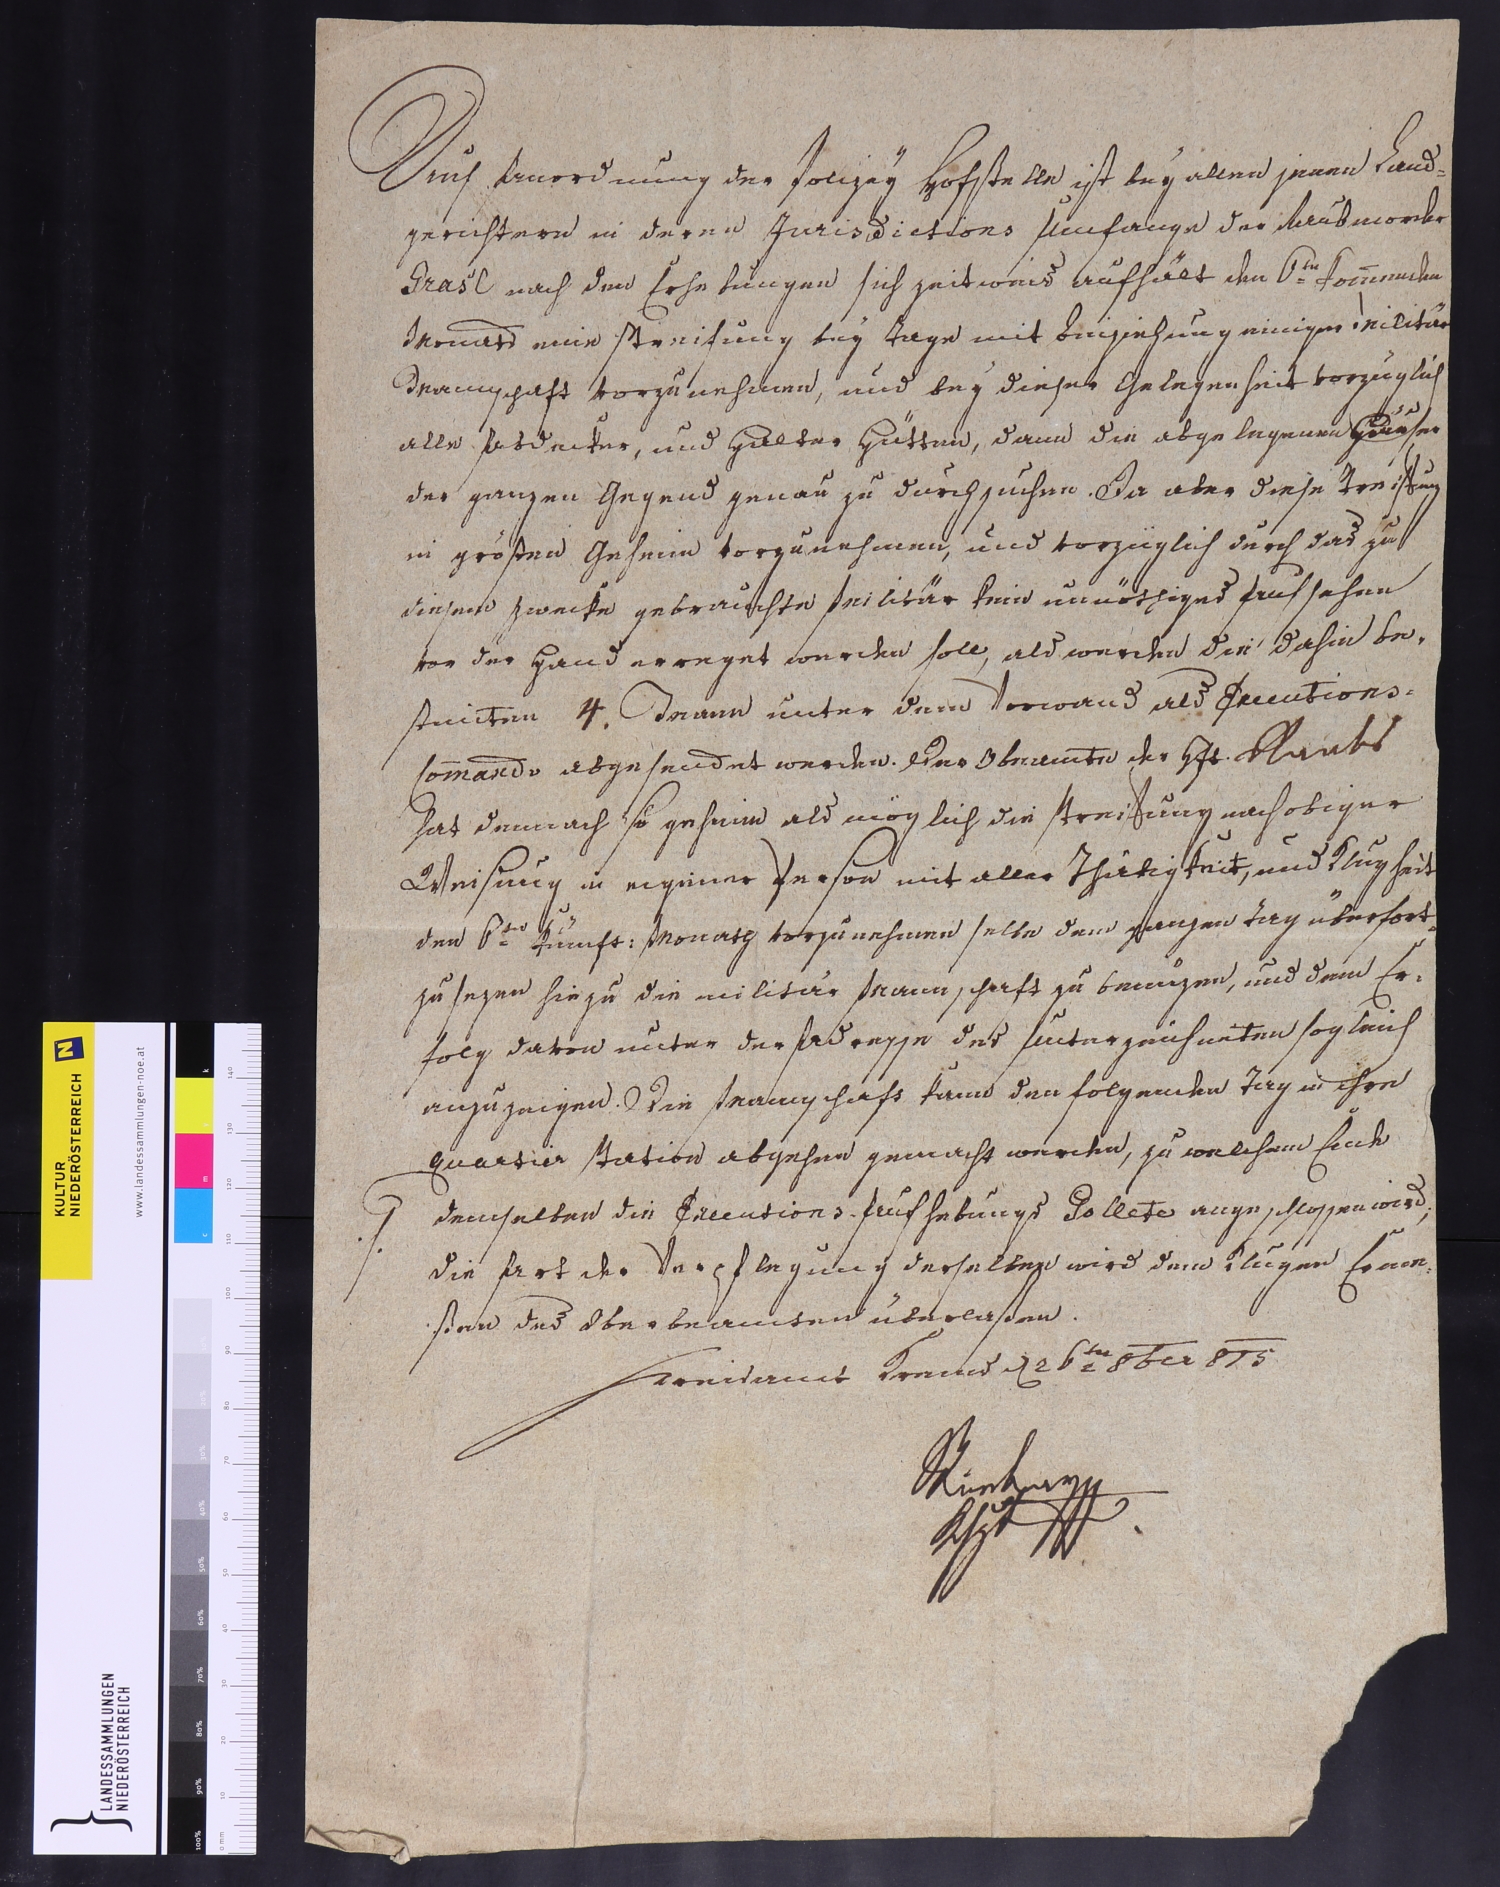 Durch Anordnung der Polizey Hofstelle ist bey allen jenen Land=
gerichtern in deren Jurisdictions Umfange der Raubmörder
Grasl nach den Erhebungen sich zeitweis aufhält den 6ten kom̅enden
Monats eine Streifung bey Tage mit Beiziehung einiger Militär
Mannschaft vorzunehmen, und bey dieser Gelegenheit vorzüglich
alle Abdecker, und Halter Hütten, dann die abgelegenen Häuser
der ganzen Gegend genau zu durchsuchen. Da aber diese Streifung
in größten Geheim vorzunehmen, und vorzüglich durch das zu
diesem Zwecke gebrauchte Militär kein unnöthiges Aufsehen
vor der Hand erreget werden soll, als werden die dahin be=
stimten 4. Mann unter dem Vorwand als Executions=
Com̅ando abgesendet werden. Der Obramte der Hft. Raabs
hat demnach so geheim als möglich die Streifung nach obiger
Weisung in eigener Person mit aller Thätigkeit, und Klugheit
den 6ten künft: Monats vorzunehmen selbe dem ganzen Tag über fort=
zusezen hiezu die militär Mannschaft zu benüzen, und dem Er=
folg davon unter der Adresse des Unterzeichneten sogleich
anzuzeigen. Die Mannschaft kann den folgenden Tag in ihre
Quartier Station abgehen gemacht werden, zu welchem Ende
./. demselben die Executions-Aufhebungs Pollete angeschlossen wird,
die Art der Verpflegung derselben wird dem klugen Ermes=
sen des Oberbeamten überlaßen.
Kreisamt Krems d 26ten 8ber 815
KULTUR
NIEDERÖSTERREICH
N
www.landessammlungen-noe.at
LANDESSAMMLUNGEN
NIEDERÖSTERREICH